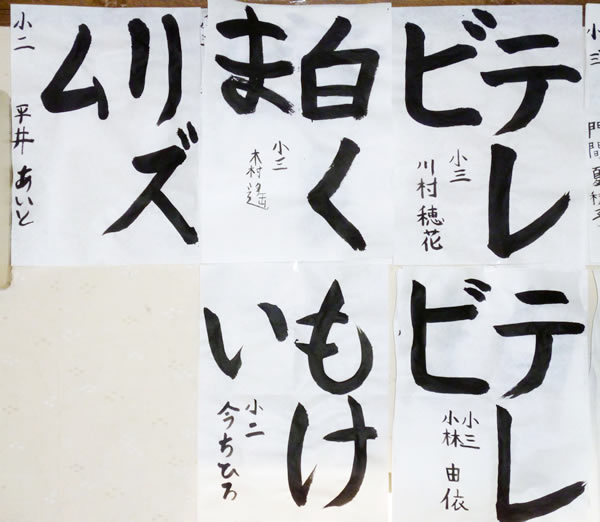 小三
門間
テレ
ビ
小三
川村穂花
白く
ま
小三
木村
リズ
ム
小二
平井あいと
テレ
ビ
小三
小林由依
もけ
い
小二
今ちひろ